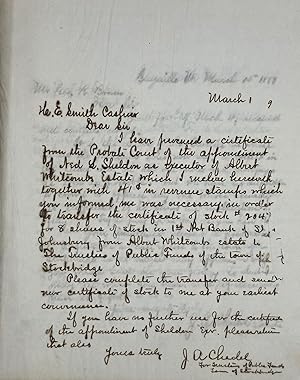 March 1 9
H. E. Smith Cashier
Dear Sir
I have procured a certificate
from the Probate Court of the appointment
of Ned L. Sheldon as Executor of Albert
Whitcombs Estate which I enclose herewith
together with 41¢ in revenue stamps which
you informed me was necessary in order
to transfer the certificate of stock # 204
for 8 shares of stock in 1st Nat Bank of St
Johnsbury from Albert Whitcombs estate to
The Trustees of Public Funds of the town of
Stockbridge
Please complete the transfer and send
new certificate of stock to me at your earliest
convenience.
If you have no further use for the certificate
of the appointment of Sheldon Exr. please return
that also
Yours truly
J A Chedel
For Trustees of Public Funds
Town of Stockbridge